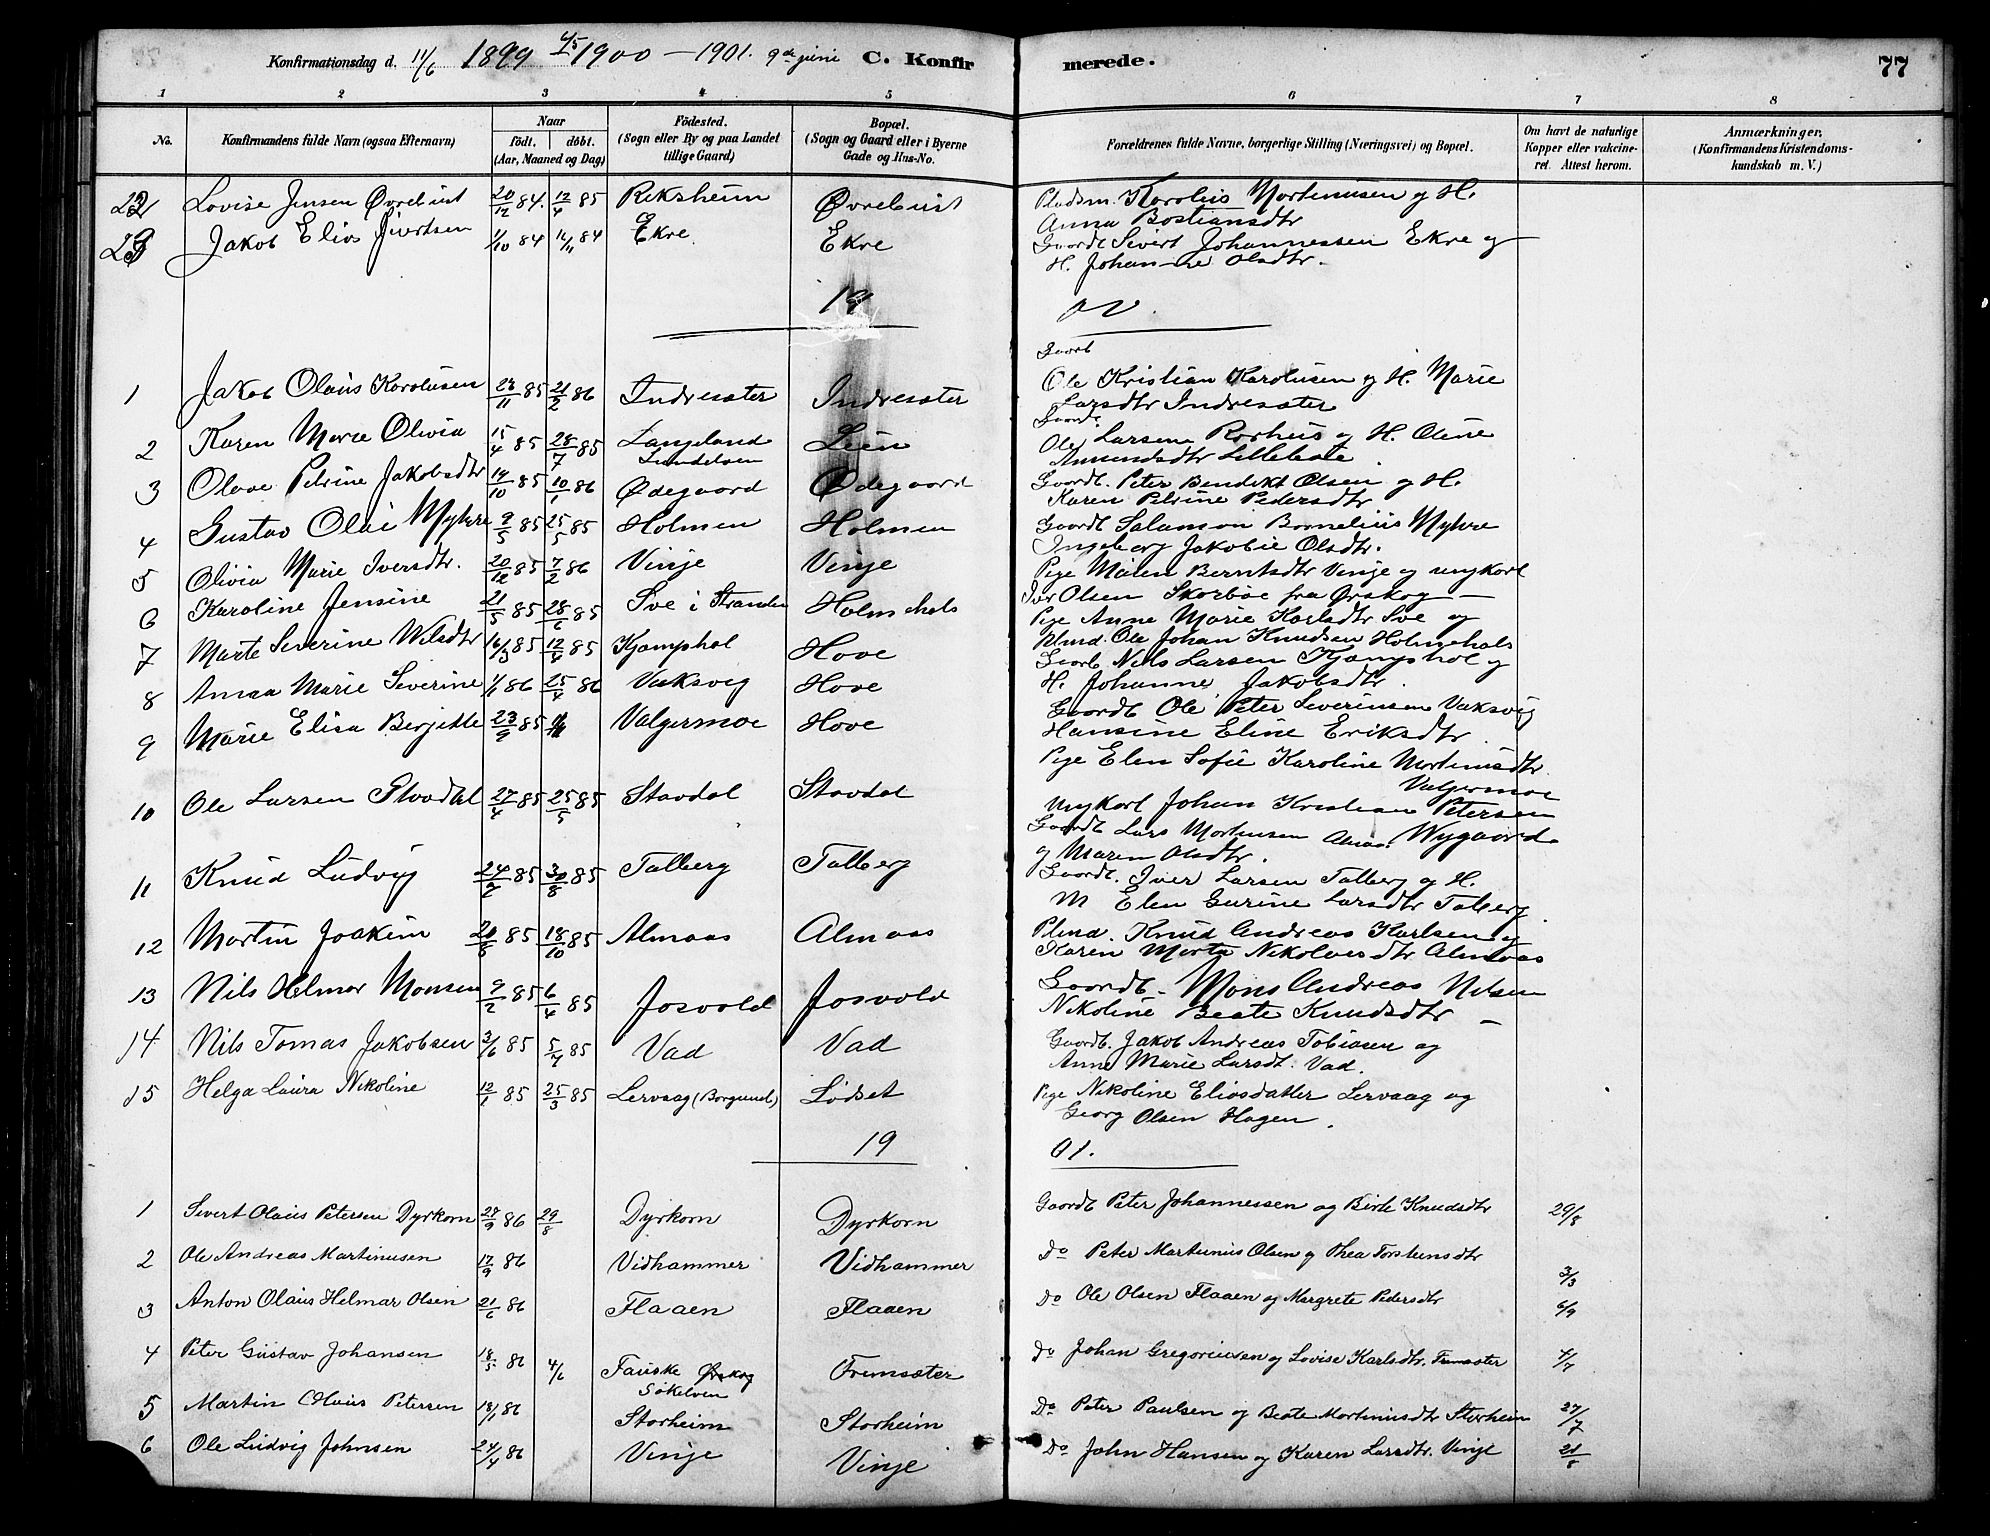 Konfirmationsdag d. 11/6 1899 4/5 1900 — 1901. 9de juni C. Konfirmerede. 77
1 2 3 4 5 6 7 8
No. Konfirmandens fulde Navn (ogsaa Efternavn) Naar födt. döbt. (Aar, Maaned og Dag) Födested. (Sogn eller By og paa Landet tillige Gaard) Bopæl. (Sogn og Gaard eller i Byerne Gade og Hus-No. Forældrenes fulde Navne, borgerlige Stilling (Næringsvei) og Bopæl. Om havt de naturlige Kopper eller vakcineret. Attest herom. Anmærkninger, (Konfirmandens Kristendomskundskab m. V.)
22 Lovise Jensen Øvrebust 20/12 84. 12/4 85 Reksheim Øvrebust Pladsm. Karolius Mortinusen g H.
Anna Bostiansdtr
23 Jakob Elias Sivertsen 1/10 84 16/11 84 Ekre Ekre Gaardb Sivert Johannessen Ekre g
H. Johanne Olsdtr.
19 00.
Gaarb
1 Jakob Olaus Karolusen 23/11 85 21/2 86 Indresæter Indresæter Ole Kristian Karolusen g H. Marie
Larsdtr Indresæter
Gaardb
2 Karen Marie Olivia 15/4 85 28/7 85 Langeland Leen Ole Larsen Rorhus g H. Oline
Amundsdtr Lillebate
3 Olave Petrine Jakobsdtr 14/10 85 10/1 86 Ødegaard Ødegaard Gaardb. Peter Bendikt Olsen g H.
Karen Petrine Pedersdtr
4 Gustav Olai Myhre 9/5 85 25/5 85 Holmen Holmen Gaardb Salamon Bornelius Myhre
Ingeborg Jakobie Olsdtr.
5 Olivia Marie Iversdtr. 20/12 85 7/2 86 Vinje Vinje Pige Maren Berntsdtr Vinje og ungkarl
Iver Olsen Skorboe fra Ørskog —
6 Karoline Jensine 21/5 85 28/6 85 Sve i Stranden Holmehals Pige Anne Marie Karlsdtr Sve og
Plmd. Ole Johan Knudsen Holmehals
7 Marte Severine Nilsdtr 16/3 85 12/4 85 Kjamphol Hove Gaarb Nils Larsen Kjamphol g
H. Johanne Jakobsdtr.
8 Anna Marie Severine 1/1 86 25/4 86 Vaksvig Hove Gaardb Ole Peter Severinsen Vaksvig
Hansine Eline Eriksdtr
9 Marie Elisa Berjitte 23/9 85 Valgermoe Hove Pige Elen Sofie Karoline Mortinusdtr
Valgermoe
Ungkarl Johan Kristian Petersen
Nygaard
10 Ole Larsen Stavdal 27/4 85 25/5 85 Stavdal Stavdal Gaardb Lars Mortinusen
g Maren Olsdtr.
11 Knud Ludvig 24/7 85 30/8 85 Talberg Talberg Gaardb. Iver Larsen Talberg g H.
M Elen Gurine Larsdtr Talberg
12 Martin Joakim 20/6 85 18/10 85 Almaas Almaas Plmd. Knud Andreas Karlsen g
Karen Marta Nikolaesdtr Almaas
13 Nils Helmar Monsen 9/2 85 6/4 85 Josvold Josvold Gaardb. Mons Andreas Nilsen
Nikoline Beate Knudsdtr —
14 Nils Tomas Jakobsen 3/6 85 5/7 85 Vad Vad Gaardb. Jakob Andreas Tobiasen og
Anne Marie Larsdt. Vad.
15 Helga Laura Nikoline 12/1 85 25/3 85 Lervaag (Borgund) Lødset Pige Nikoline Eliasdatter Lervaag og
Georg Olsen Hagen.
19 01.
1 Sivert Olaus Petersen Dyrkorn 28/9 86 29/8 Dyrkorn Dyrkorn Gaardb Peter Johannessen og Birte Knudsdtr 29/8
2 Ole Andreas Martinusen 17/9 86 Vidhammer Vidhammer Do Peter Martinius Olsen g Thea Torstensdtr 3/3
3 Anton Olaus Helmar Olsen 21/6 86 Flaaen Flaaen Do Ole Olsen Flaaen og Margrete Pedersdtr 6/9
4 Peter Gustav Johansen 18/5 86 4/6 Fauske Ørskog Søkelven Fremsæter Do Johan Gregoriusen g Lovise Karlsdtr. Fremsæter 4/7
5 Martin Olaus Petersen 18/1 86 Storheim Storheim Do Peter Paulsen og Beate Mortinusdtr Storheim 27/7
6 Ole Ludvig Johnsen 24/4 86 Vinje Vinje Do John Hansen og Karen Larsdtr. Vinje 21/8